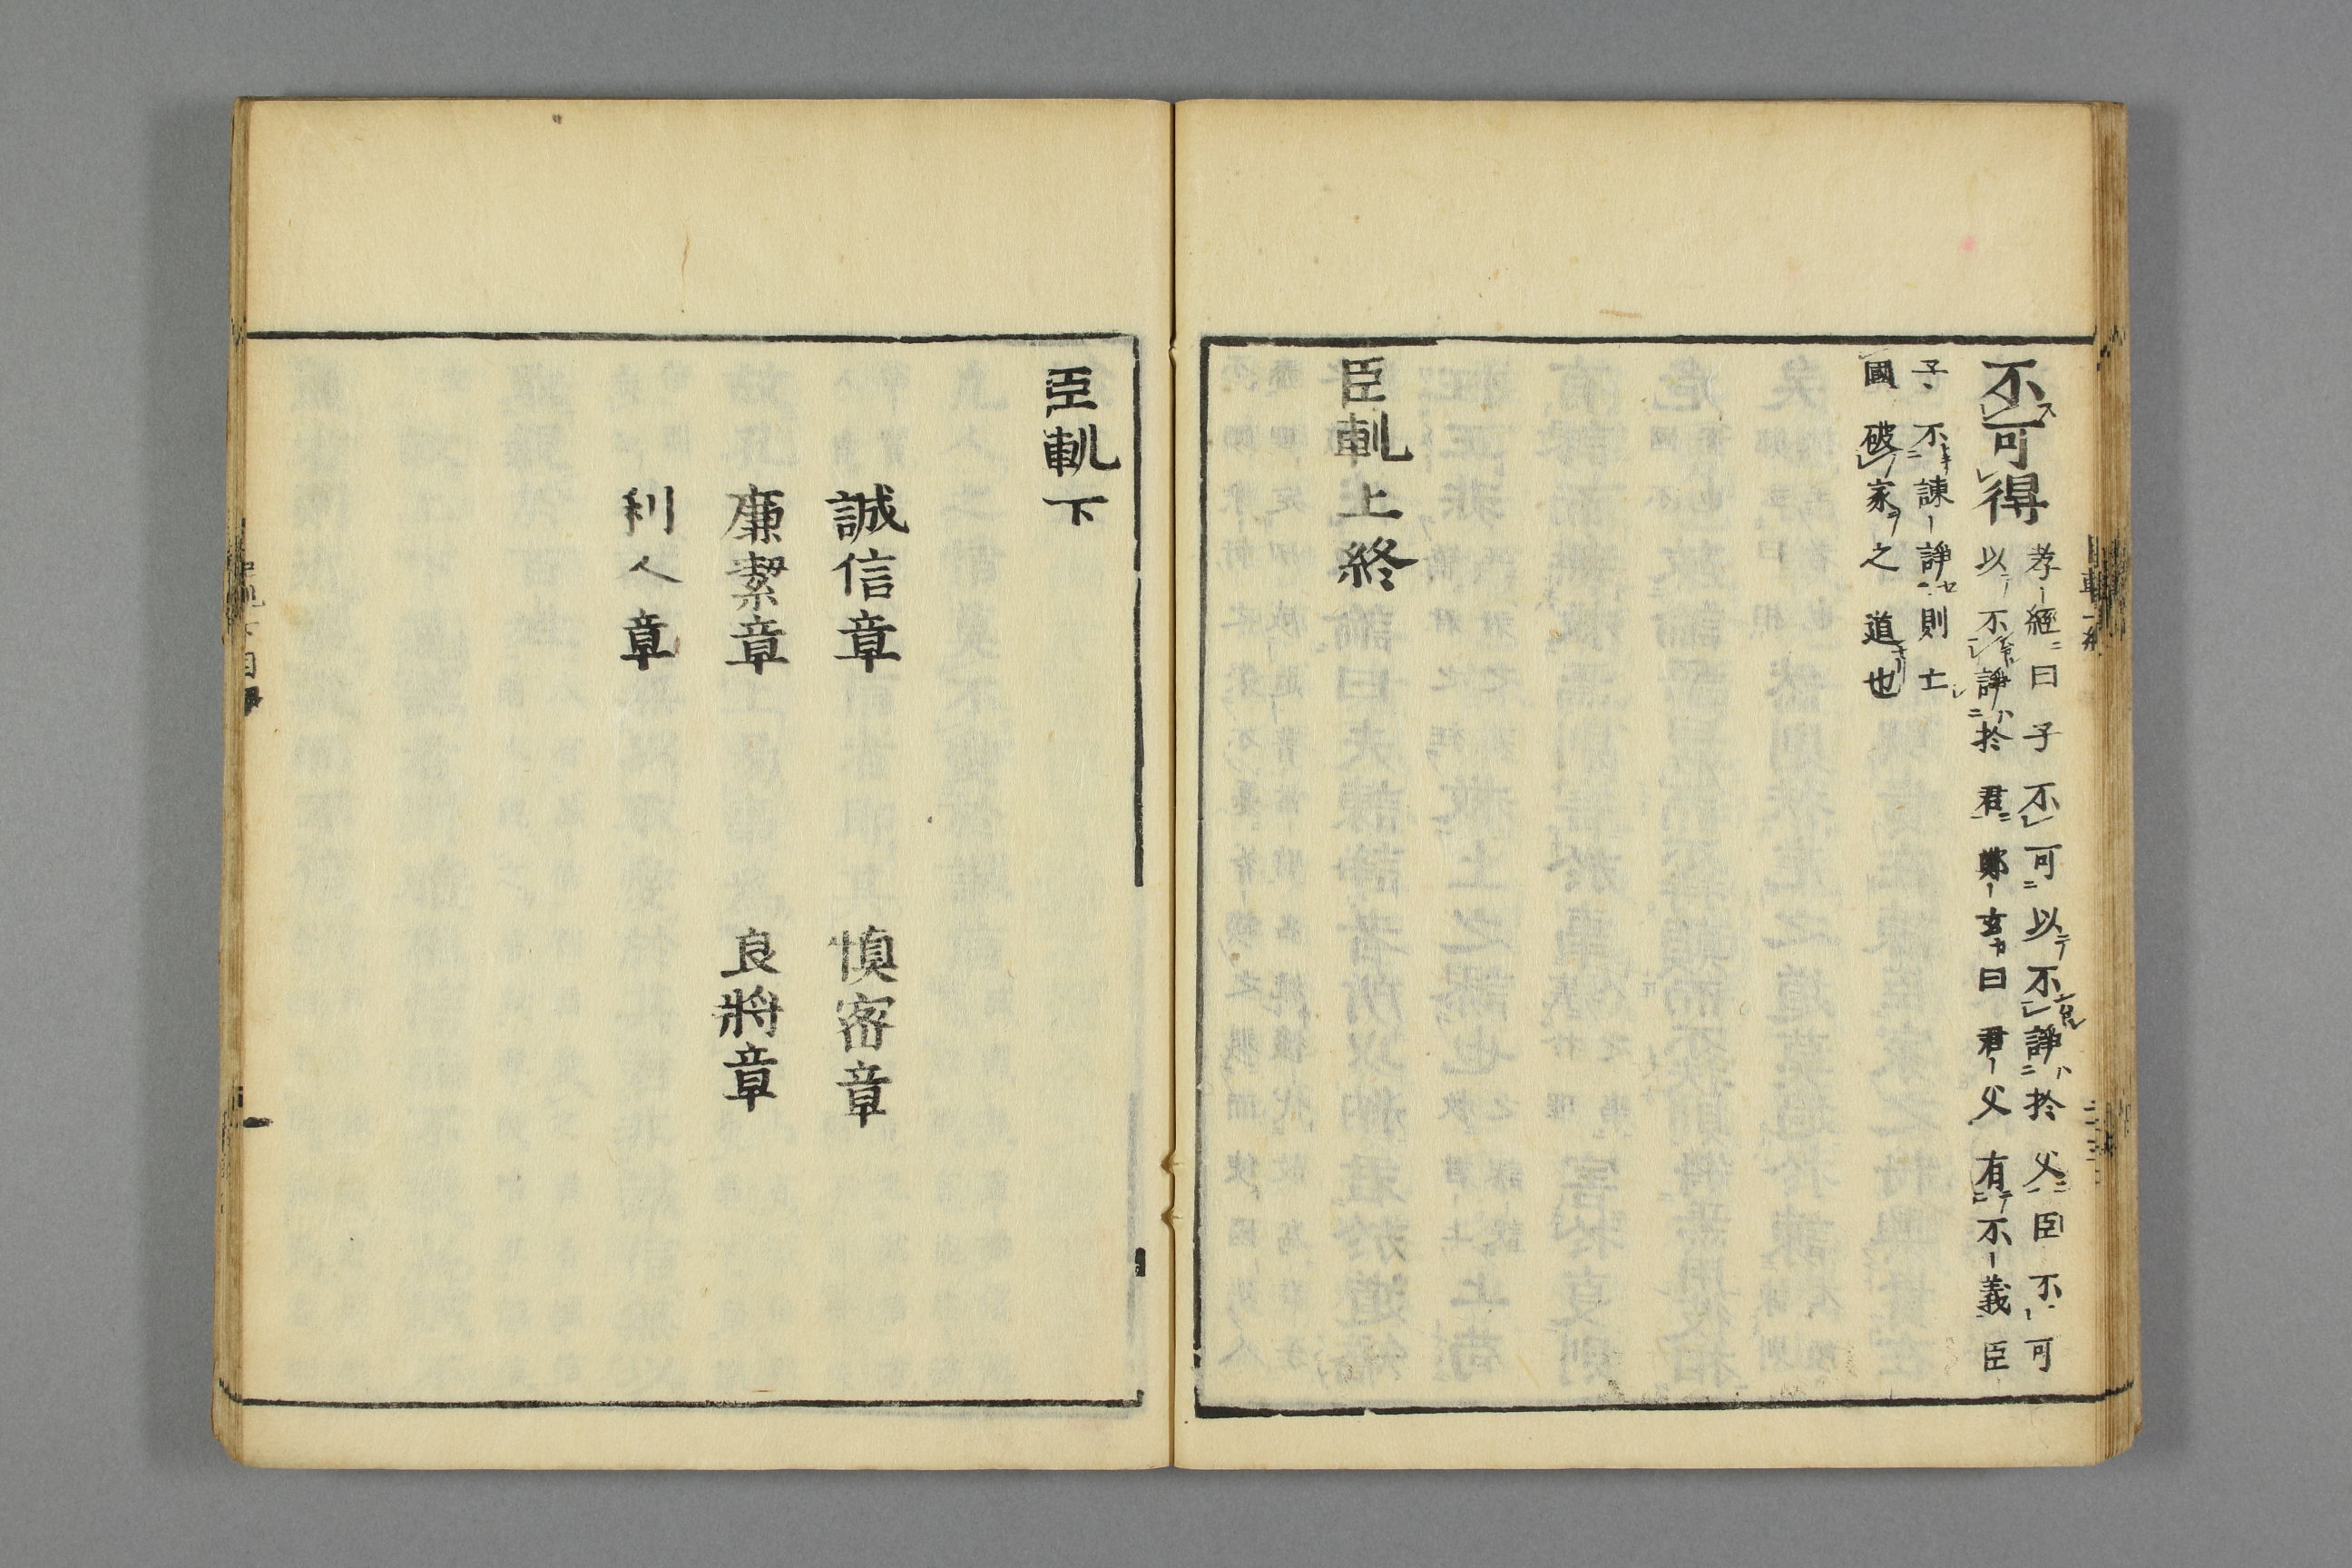 不可得
孝經曰子不可以不諍於父臣不可
以不諍於君鄭玄曰君父有不義臣
子不諫諍則亡
國破家之道也
臣軌上終
臣軌下
誠信章 慎密章
廉潔章 良將章
利人章